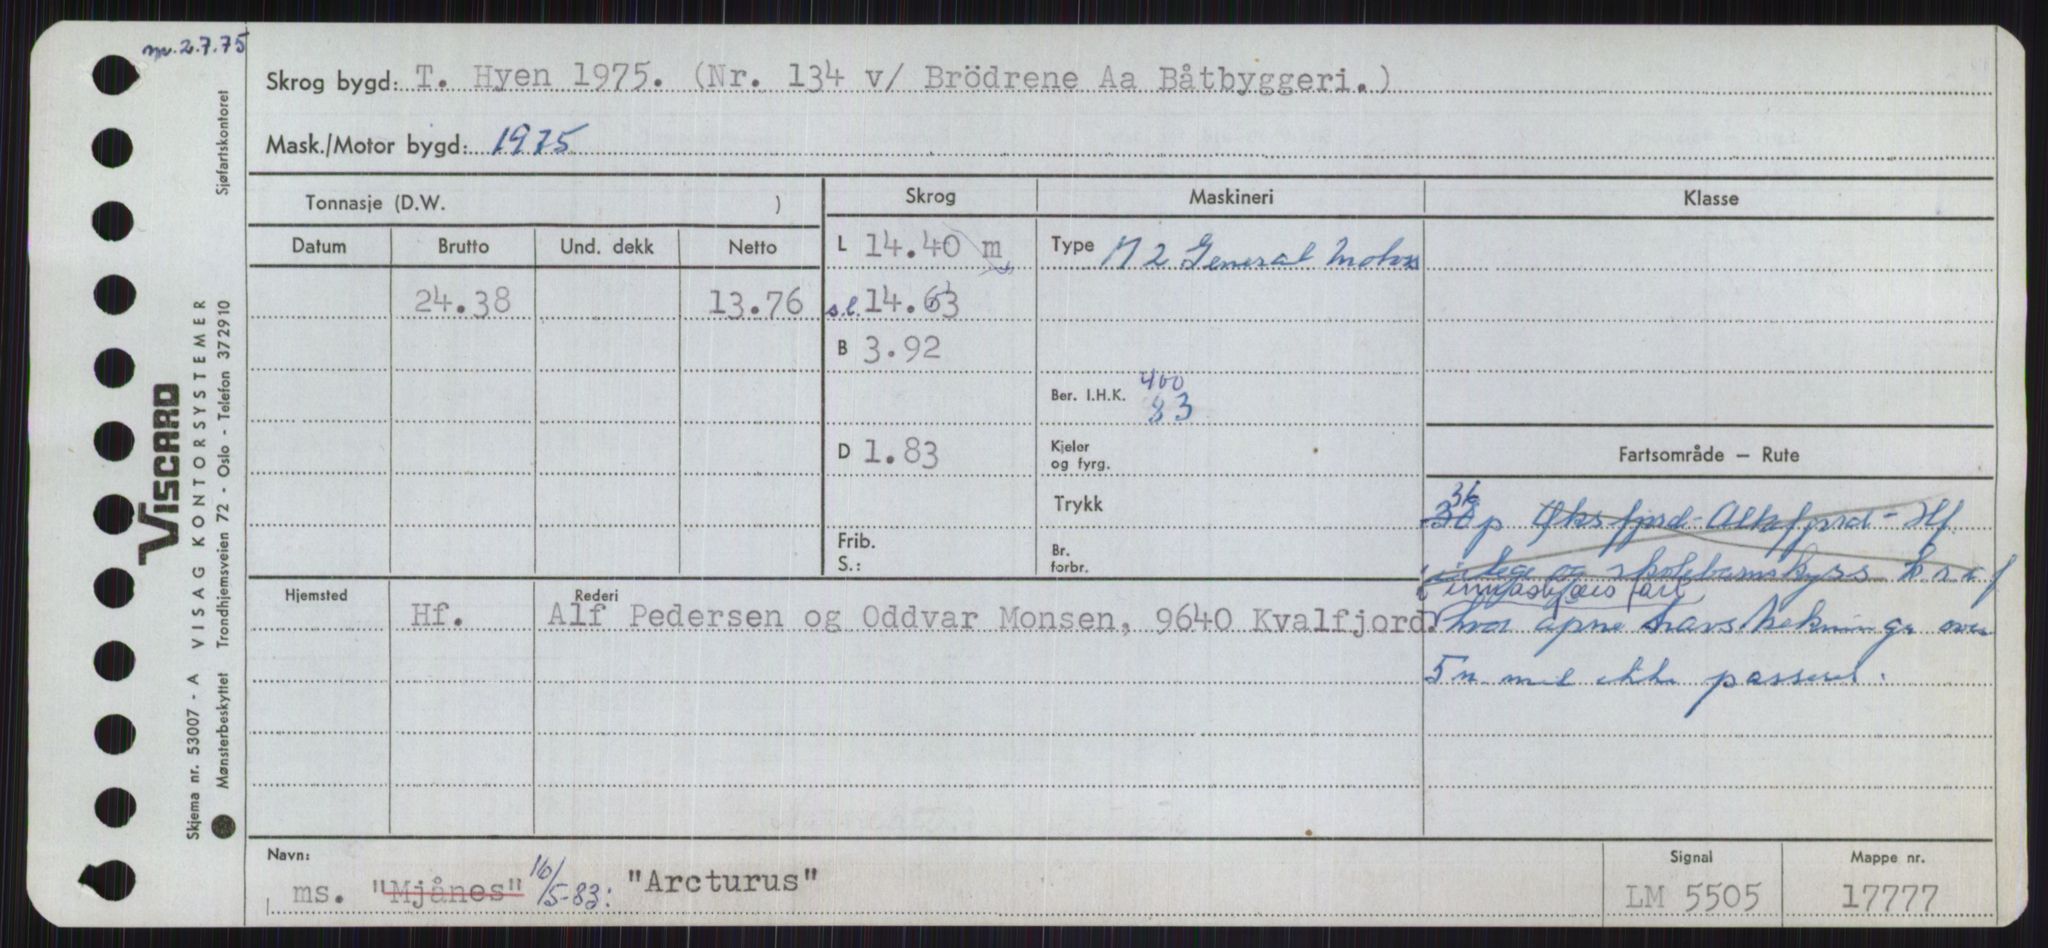 nv. 2.7.75
Skrog bygd: T. Hyen 1975. (Nr. 134 v/ Brödrene Aa Båtbyggeri.)
Mask./Motor bygd: 1975
Tonnasje (D.W. )
Skrog
Maskineri
Klasse
Datum
Brutto
Und. dekk
Netto
24.38
13.76
L 14.40 m
s.l. 14.63
B 3.92
D 1.83
Frib.
S.:
Type 12 General Motors
400
Ber. I.H.K. 83
Kjeler
og fyrg.
Trykk
Br.
forbr.
Fartsområde – Rute
36
p Øksfjord - Altafjord - Hf
og skolebarnskyss
innaskjærs fart
hvor åpne havstrekninger over
5 n mil ikke passeres.
Hjemsted
Rederi
Hf.
Alf Pedersen og Oddvar Monsen, 9640 Kvalfjord.
Navn:
ms. "Mjånes" 16/5-83: "Arcturus"
Signal
LM 5505
Mappe nr.
17777
VISCARD
Skjema nr. 53007 - A VISAG KONTORSYSTEMER
Mønsterbeskyttet Trondhjemsveien 72 - Oslo - Telefon 372910
Sjøfartskontoret